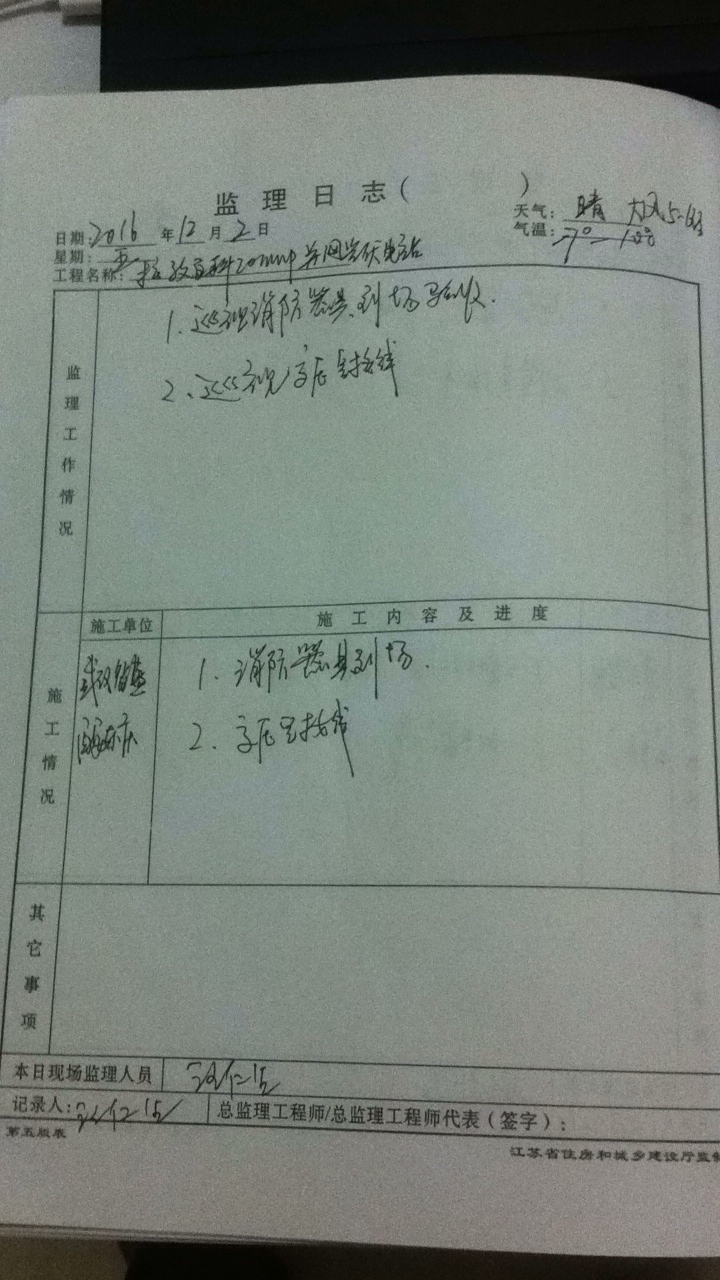 监理日志（ ）
日期：2016年12月2日 天气：晴 大风5-6级
星期：五 气温：-7°
工程名称： 20MWp并网光伏电站
监理工作情况
1. 巡视消防器具到场验收.
2. 巡视 接线
施工情况
施工单位 施工内容及进度
1. 消防器具到场.
2. 接线
其它事项
本日现场监理人员
记录人： 总监理工程师/总监理工程师代表（签字）：
第五版表 江苏省住房和城乡建设厅监制